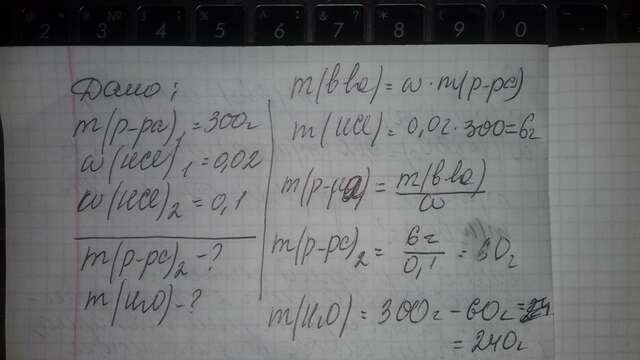 2 3 4 5 6 7 8 9 0
Дано:
m(р-ра)₁ = 300г
ω(HCl)₁ = 0,02
ω(HCl)₂ = 0,1
m(р-ра)₂ - ?
m(H₂O) - ?
m(в-ва) = ω · m(р-ра)
m(HCl) = 0,02 · 300 = 6г
m(р-ра) = m(в-ва)/ω
m(р-ра)₂ = 6г/0,1 = 60г
m(H₂O) = 300г - 60г =
= 240г